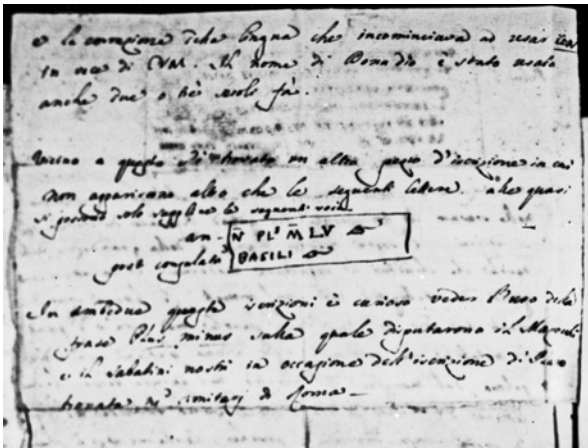 e la corruzione della lingua che incominciava ad usar UM
in vece di VM. Il nome di è stato usato
anche due o tre secoli fà.
Vicino a questo si è trovato un altro pezzo d'iscrizione in cui
non appariscono altro che le seguenti lettere alle quali
si possono solo supplire le seguenti voci
an- N PL' M LV
post consulatu BASILI
In ambedue queste iscrizioni è curioso veder l'uso della
frase Plus minus sulla quale disputarono il Mazochi
e il Sabatini nostri in occasione dell'iscrizione di
trovata ne' cimiterj di Roma —